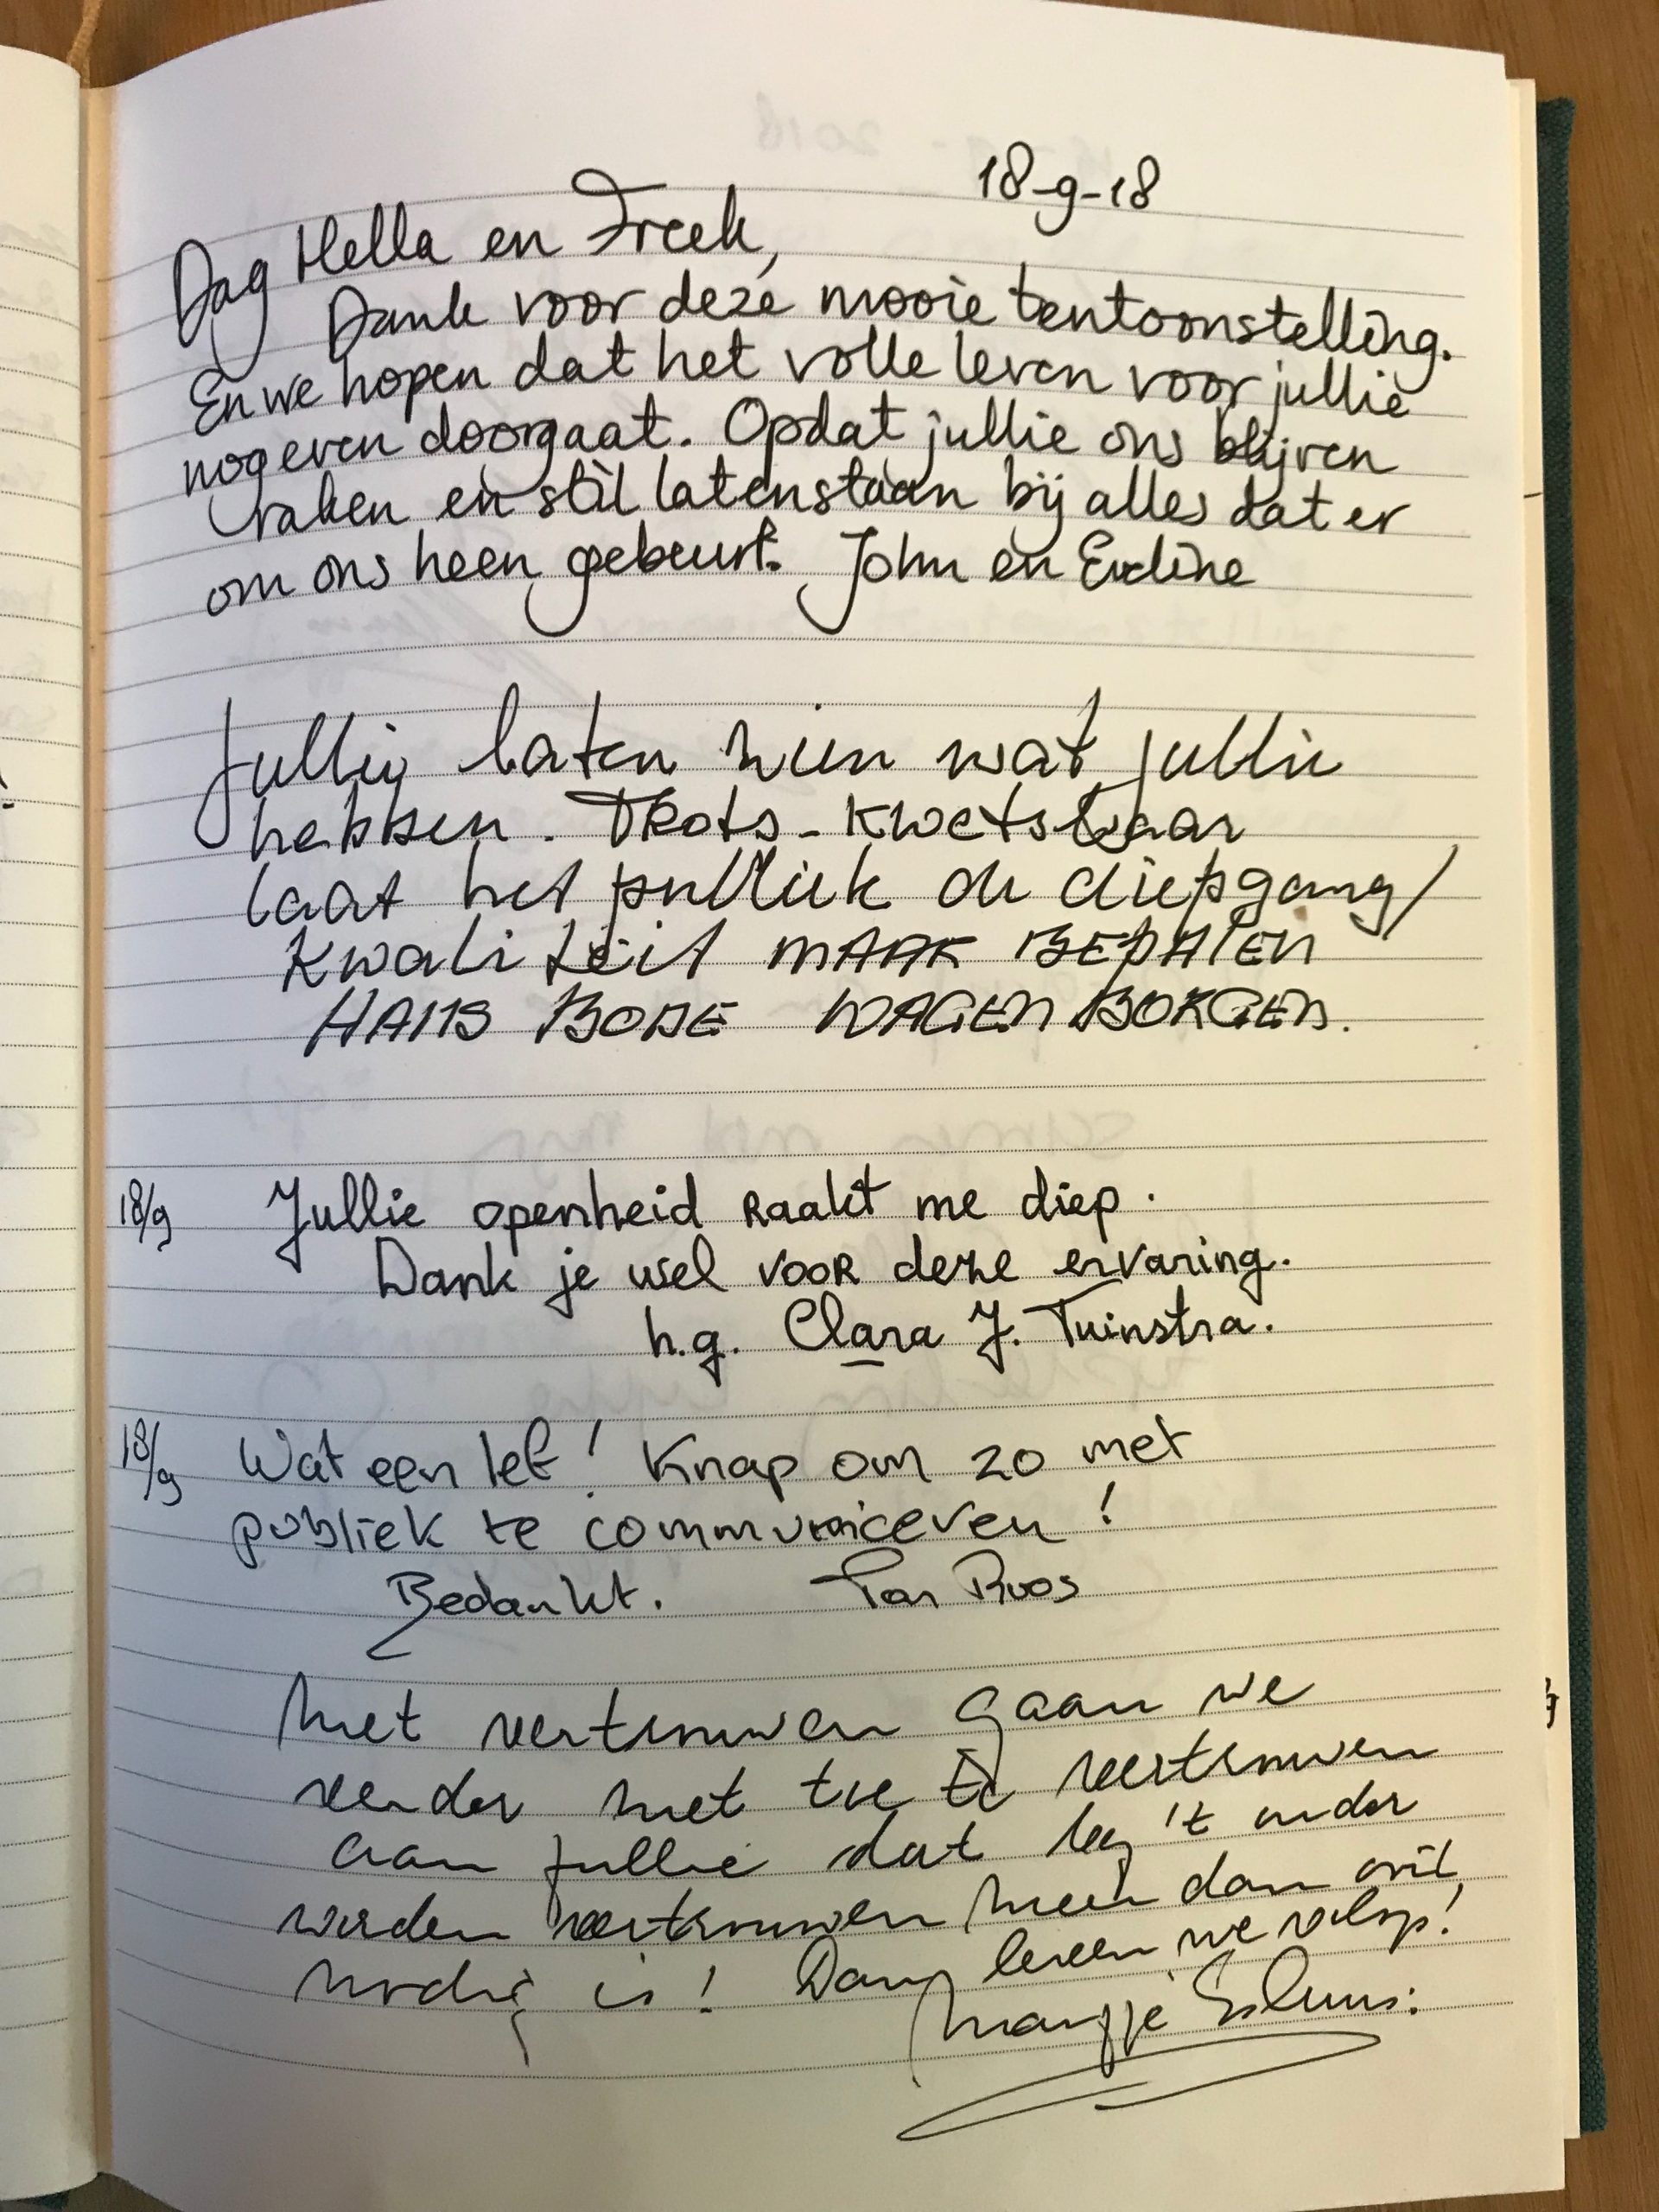 18-9-18
Dag Hella en Freek,
Dank voor deze mooie tentoonstelling.
En we hopen dat het volle leven voor jullie
nog even doorgaat. Opdat jullie ons blijven
raken en stil laten staan bij alles dat er
om ons heen gebeurt. John en Eveline
Jullie laten zien wat jullie
hebben. TRots - kwetsbaar
laat het publiek de diepgang/
kwaliteit MAAR BEPALEN
HANS BODE WAGENBORGEN.
18/9 Jullie openheid raakt me diep.
Dank je wel voor deze ervaring.
h.g. Clara J. Tuinstra.
18/9 Wat een lef! Knap om zo met
publiek te communiceren!
Bedankt. Roos
Met vertrouwen gaan we
verder met toe te vertrouwen
aan jullie dat leg 't onder
woorden vertrouwen meer dan ooit
nodig is! Dan leven we volop!
Marijje